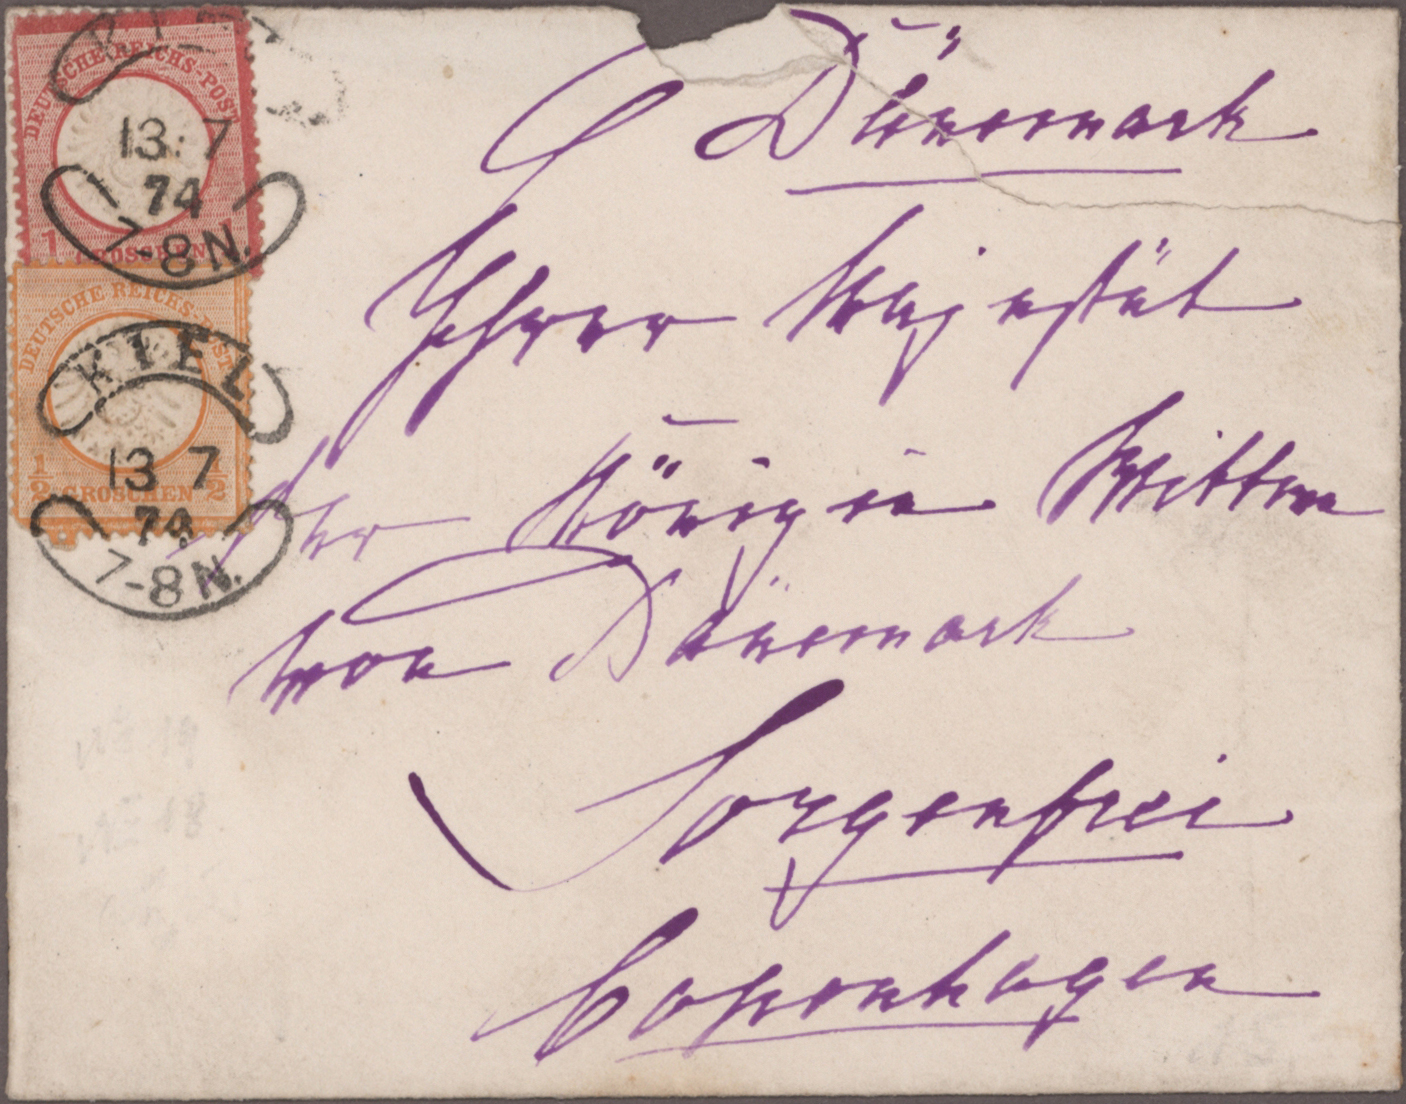 DEUTSCHE REICHS-POST
13. 7
74
7-8N.
1 GROSCHEN 1
DEUTSCHE REICHS-POST
KIEL
13 7
74
7-8N.
1/2 GROSCHEN 1/2
Dänemark
Ihrer Majestät
der Königin Wittwe
von Dänemark
Sorgenfrei
Copenhagen